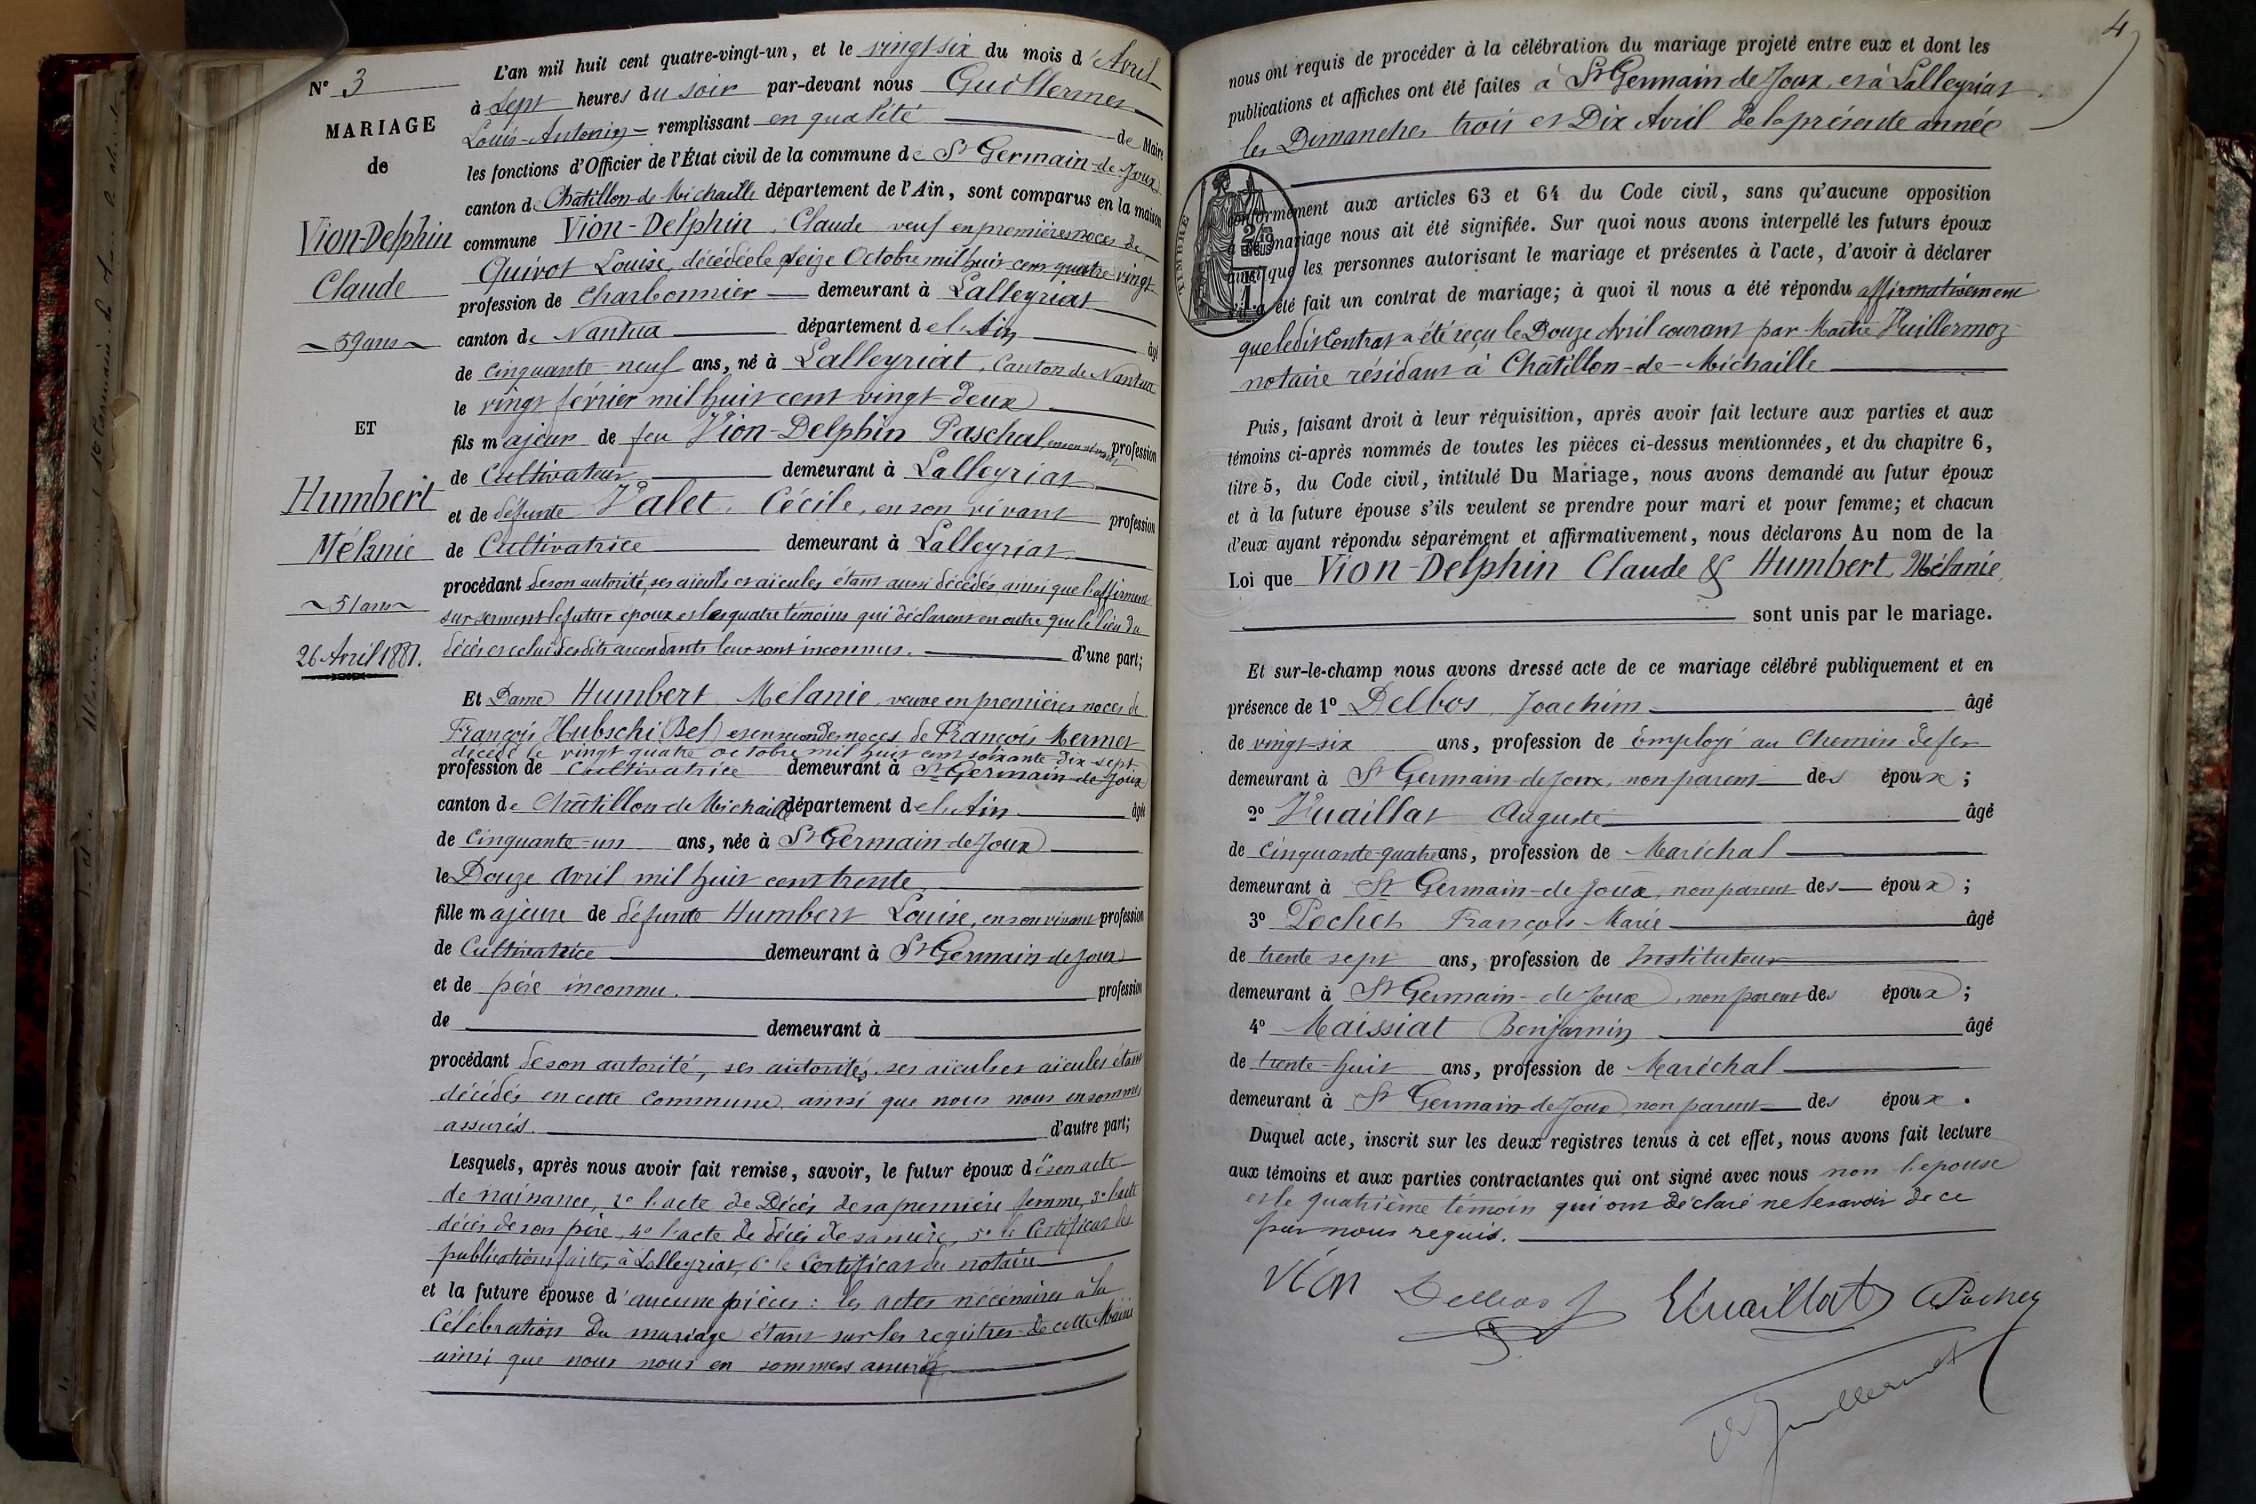 N° 3
MARIAGE
de
Vion-Delphin
Claude
~ 59 ans ~
ET
Humbert
Mélanie
~ 51 ans ~
26 Avril 1881.
L'an mil huit cent quatre-vingt-un, et le vingt six du mois d'Avril
à Sept heures du soir par-devant nous Guillermet
Louis-Antonin remplissant en qualité de Maire
les fonctions d'Officier de l'État civil de la commune de St Germain-de-Joux
canton de Châtillon-de-Michaille département de l'Ain, sont comparus en la maison
commune Vion-Delphin, Claude veuf en premières noces de
Quivot Louise, décédée le seize Octobre mil huit cent quatre-vingt
profession de Charbonnier demeurant à Lalleyriat
canton de Nantua département de l'Ain âgé
de cinquante-neuf ans, né à Lalleyriat, Canton de Nantua
le vingt février mil huit cent vingt-deux
fils majeur de feu Vion-Delphin Paschal, en son vivant profession
de Cultivateur demeurant à Lalleyriat
et de défunte Valet, Cécile, en son vivant profession
de Cultivatrice demeurant à Lalleyriat
procédant de son autorité, ses aïeuls et aïeules étant aussi décédés ainsi que l'affirment
sur serment le futur époux et les quatre témoins qui déclarent en outre que le lieu du
décès et celui desdits ascendants leur sont inconnus. d'une part;
Et Dame Humbert, Mélanie, veuve en premières noces de
François Hubschi (Bel) et en secondes noces de François Mermet
décédé le vingt quatre octobre mil huit cent soixante dix-sept
profession de Cultivatrice demeurant à St Germain-de-Joux
canton de Châtillon de Michaille département de l'Ain âgée
de cinquante-un ans, née à St Germain-de-Joux
le Douze Avril mil huit cent trente,
fille majeure de défunte Humbert Louise, en son vivant profession
de Cultivatrice demeurant à St Germain-de-Joux
et de père inconnu. profession
de demeurant à
procédant de son autorité, ses autorités, ses aïeuls et aïeules étant
décédés en cette Commune ainsi que nous nous en sommes
assurés. d'autre part;
Lesquels, après nous avoir fait remise, savoir, le futur époux de son acte
de naissance, 2° l'acte de Décès de sa première femme, 3° l'acte
décès de son père, 4° l'acte de décès de sa mère, 5° le Certificat des
publications faites à Lalleyriat, 6° le Certificat du notaire
et la future épouse d'aucune pièces : les actes nécessaires à la
Célébration du mariage étant sur les registres de cette Mairie
ainsi que nous nous en sommes assurés
4
nous ont requis de procéder à la célébration du mariage projeté entre eux et dont les
publications et affiches ont été faites à St Germain de Joux, et à Lalleyriat
les Dimanches trois et Dix Avril de la présente année
TIMBRE
2/10ES
EN SUS
conformément aux articles 63 et 64 du Code civil, sans qu'aucune opposition
à ce mariage nous ait été signifiée. Sur quoi nous avons interpellé les futurs époux
ainsi que les personnes autorisant le mariage et présentes à l'acte, d'avoir à déclarer
s'il a été fait un contrat de mariage; à quoi il nous a été répondu affirmativement
que ledit Contrat a été reçu le Douze Avril courant par Maître Vuillermoz
notaire résidant à Châtillon-de-Michaille
Puis, faisant droit à leur réquisition, après avoir fait lecture aux parties et aux
témoins ci-après nommés de toutes les pièces ci-dessus mentionnées, et du chapitre 6,
titre 5, du Code civil, intitulé Du Mariage, nous avons demandé au futur époux
et à la future épouse s'ils veulent se prendre pour mari et pour femme; et chacun
d'eux ayant répondu séparément et affirmativement, nous déclarons Au nom de la
Loi que Vion-Delphin Claude & Humbert, Mélanie,
sont unis par le mariage.
Et sur-le-champ nous avons dressé acte de ce mariage célébré publiquement et en
présence de 1° Delbos, Joachim âgé
de vingt-six ans, profession de Employé au Chemin de fer
demeurant à St Germain-de-Joux, non parent des époux;
2° Vuaillat Auguste âgé
de cinquante-quatre ans, profession de Maréchal
demeurant à St Germain-de-Joux, non parent des époux;
3° Pochet François-Marie âgé
de trente sept ans, profession de Instituteur
demeurant à St Germain-de-Joux, non parent des époux;
4° Maissiat Benjamin âgé
de trente-huit ans, profession de Maréchal
demeurant à St Germain-de-Joux, non parent des époux.
Duquel acte, inscrit sur les deux registres tenus à cet effet, nous avons fait lecture
aux témoins et aux parties contractantes qui ont signé avec nous non l'épouse
et le quatrième témoin qui ont déclaré ne le savoir de ce
par nous requis.
Vion Delbos J Vuaillat Pochet
Guillermet